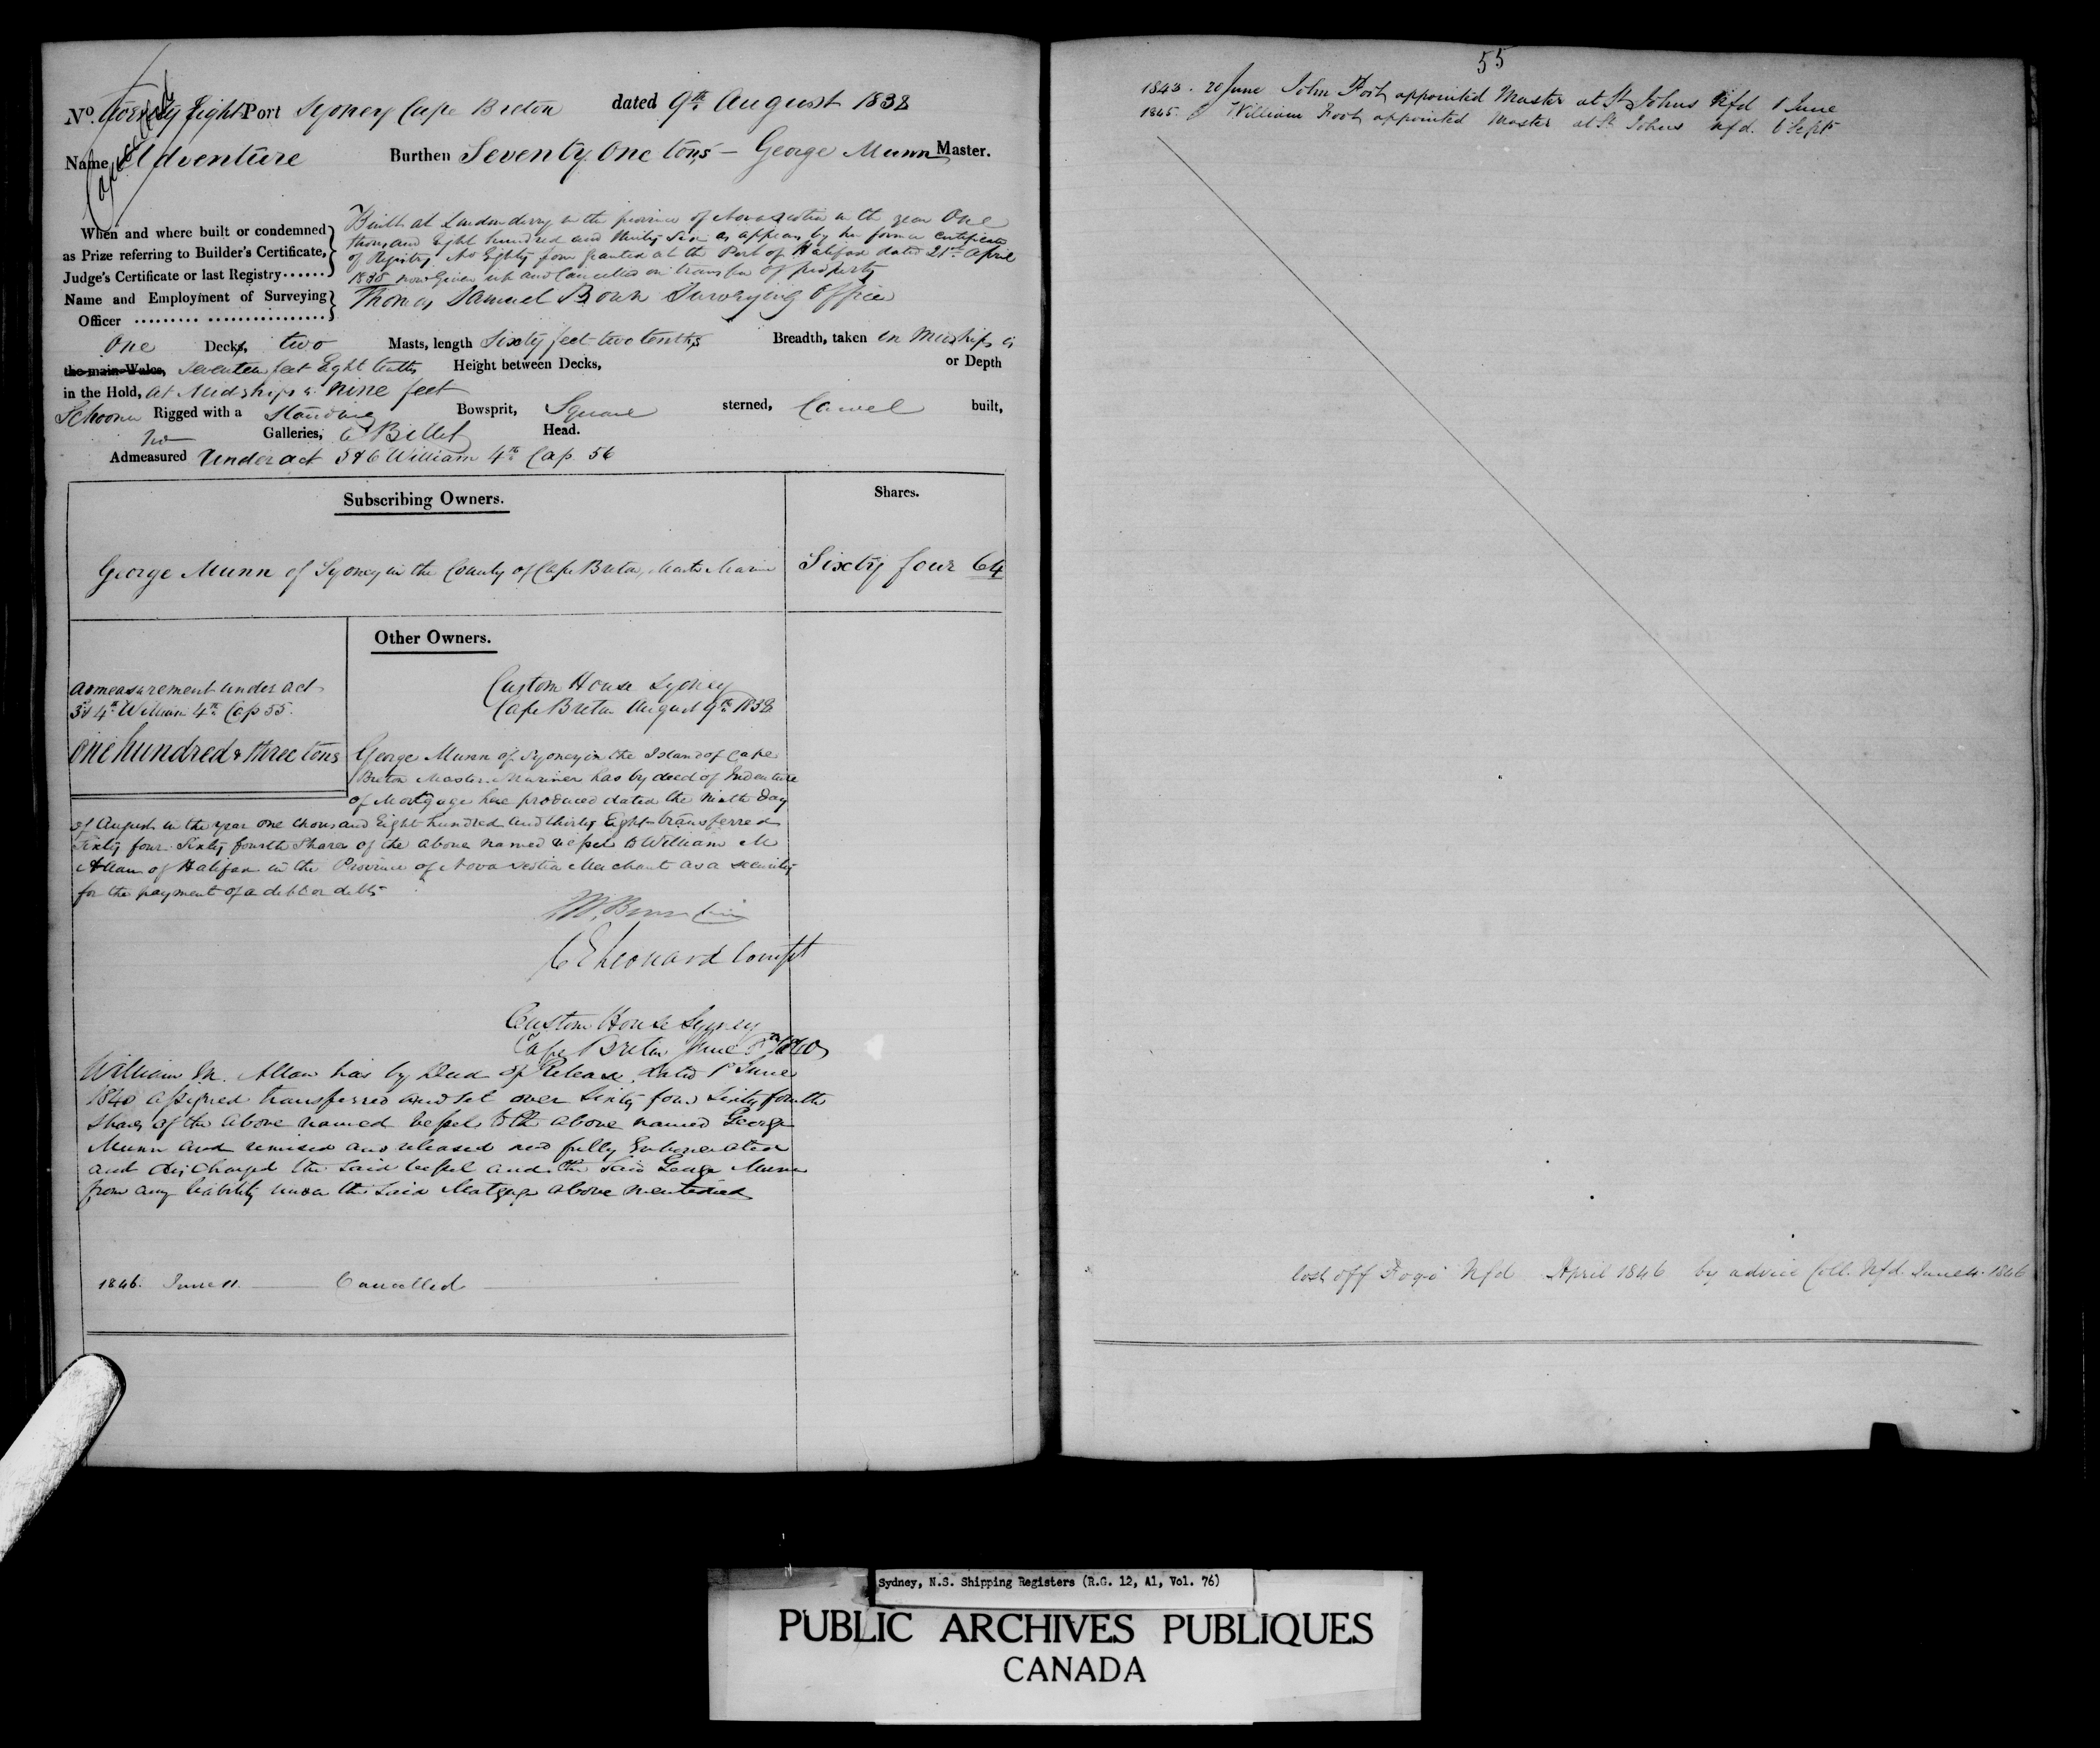 No. Forty Eight Port Sydney Cape Breton dated 9th August 1838
Cancelled
Name Adventure Burthen Seventy One tons — George Munn Master.
When and where built or condemned as Prize referring to Builder's Certificate, Judge's Certificate or last Registry......
Built at Londonderry in the province of Nova Scotia in the year One
thousand Eight hundred and thirty Six as appears by her former Certificate
of Registry No Eighty four granted at the Port of Halifax dated 21st April
1838 now Given up and Cancelled on transfer of property
Name and Employment of Surveying Officer
Thomas Samuel Bown Surveying Officer
One Decks, two Masts, length Sixty feet two tenths Breadth, taken in Midships is
the main Wales, Seventeen feet Eight tenths Height between Decks, or Depth
in the Hold, at Midships is nine feet
Schooner Rigged with a Standing Bowsprit, Square sterned, Carvel built,
no Galleries, a Billet Head.
Admeasured Under act 5 & 6 William 4th Cap 56
Subscribing Owners. Shares.
George Munn of Sydney in the County of Cape Breton, Master Mariner Sixty four 64
Other Owners.
admeasurement under act
3d 4th William 4th Cap 55.
One hundred & three tons
Custom House Sydney
Cape Breton August 9th 1838
George Munn of Sydney in the Island of Cape
Breton Master Mariner has by deed of Indenture
of Mortgage here produced dated the Ninth Day
of August in the year one thousand Eight hundred and thirty Eight transferred
Sixty four Sixty fourth Shares of the above named vessel to William M
Allan of Halifax in the Province of Nova Scotia Merchant as a security
for the payment of a debt or debts
C E Leonard Compt
Custom House Sydney
Cape Breton June 1840
William M. Allan has by Deed of Release dated 1st June
1840 assigned transferred and set over Sixty four Sixty fourth
Shares of the above named vessel to the above named George
Munn and remised and released and fully Exhonerated
and discharged the said vessel and the said George Munn
from any liability under the said Mortgage above mentioned
1846. June 11. Cancelled
55
1843. 20 June John Foot appointed Master at St Johns Nfd 1 June
1845. William Foot appointed Master at St Johns Nfd. 6 Sept
lost off Fogo Nfd April 1846 by advice Coll. Nfd. June 4. 1846
Sydney, N.S. Shipping Registers (R.G. 12, A1, Vol. 76)
PUBLIC ARCHIVES PUBLIQUES
CANADA